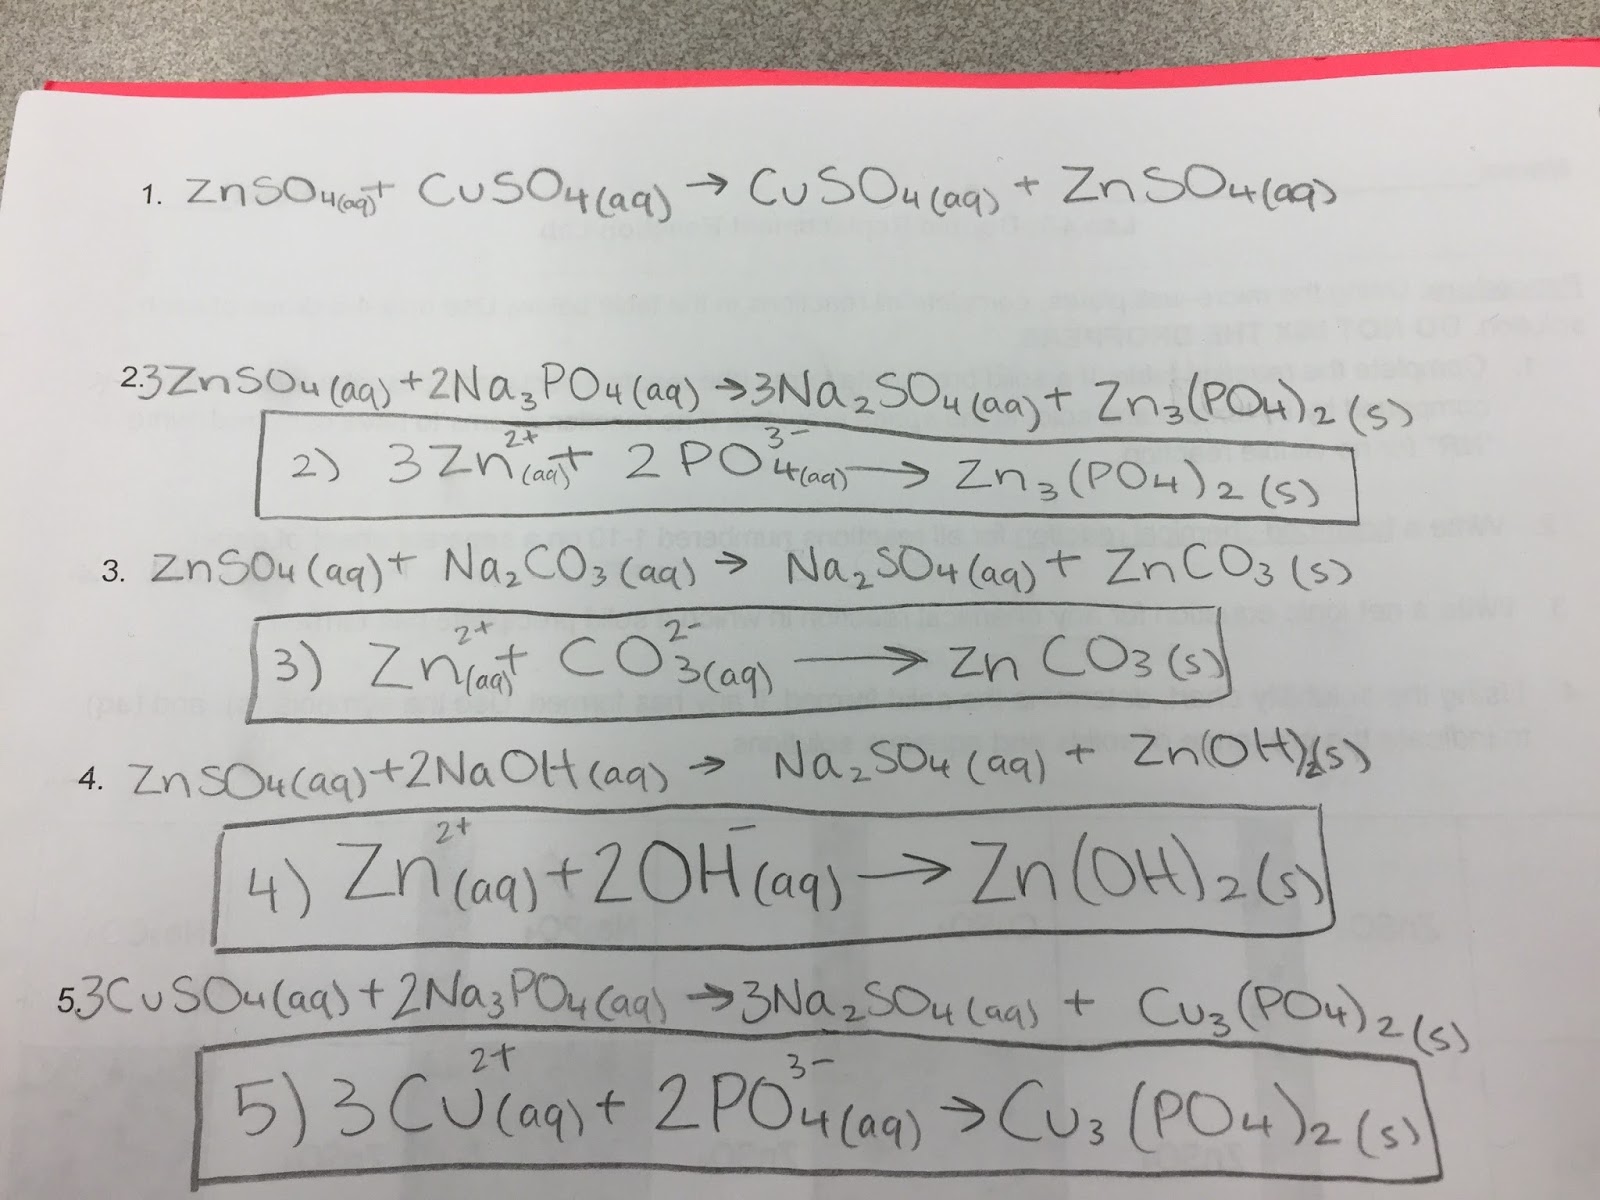 1. ZnSO₄(aq) + CuSO₄(aq) → CuSO₄(aq) + ZnSO₄(aq)
2. 3ZnSO₄(aq) + 2Na₃PO₄(aq) → 3Na₂SO₄(aq) + Zn₃(PO₄)₂(s)
2) 3Zn²⁺(aq) + 2PO₄³⁻(aq) → Zn₃(PO₄)₂(s)
3. ZnSO₄(aq) + Na₂CO₃(aq) → Na₂SO₄(aq) + ZnCO₃(s)
3) Zn²⁺(aq) + CO₃²⁻(aq) → ZnCO₃(s)
4. ZnSO₄(aq) + 2NaOH(aq) → Na₂SO₄(aq) + Zn(OH)₂(s)
4) Zn²⁺(aq) + 2OH⁻(aq) → Zn(OH)₂(s)
5. 3CuSO₄(aq) + 2Na₃PO₄(aq) → 3Na₂SO₄(aq) + Cu₃(PO₄)₂(s)
5) 3Cu²⁺(aq) + 2PO₄³⁻(aq) → Cu₃(PO₄)₂(s)